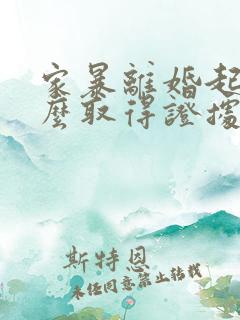 家暴離婚起
麼取得證據
斯特恩
未經同意禁止轉載